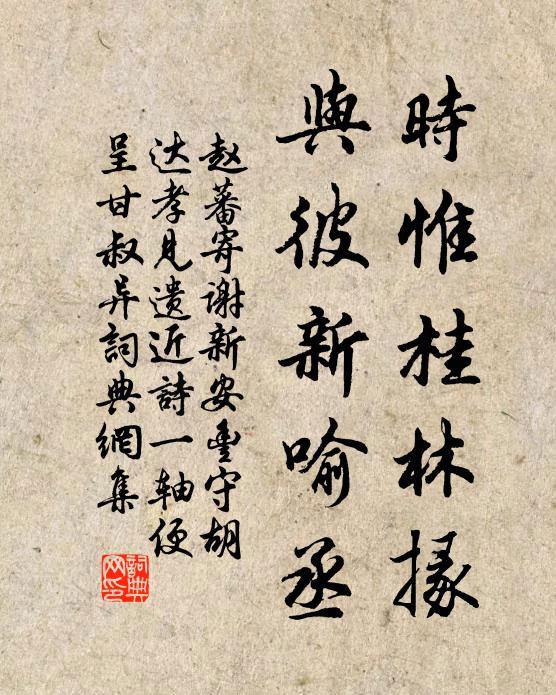 時惟桂林掾
與彼新喻丞
赵蕃寄谢新安豊守胡
达孝見遗近詩一轴便
呈甘叔异詞典網集
詞典
网印